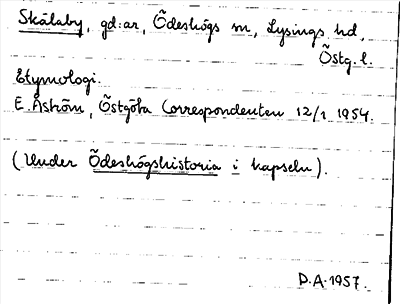 Skålaby, gd:ar, Ödeshögs sn, Lysings hd,
Östg. l.
Etymologi.
E. Åström, Östgöta Correspondenten 12/1 1954.
(Under Ödeshögshistoria i kapseln).
D.A. 1957.